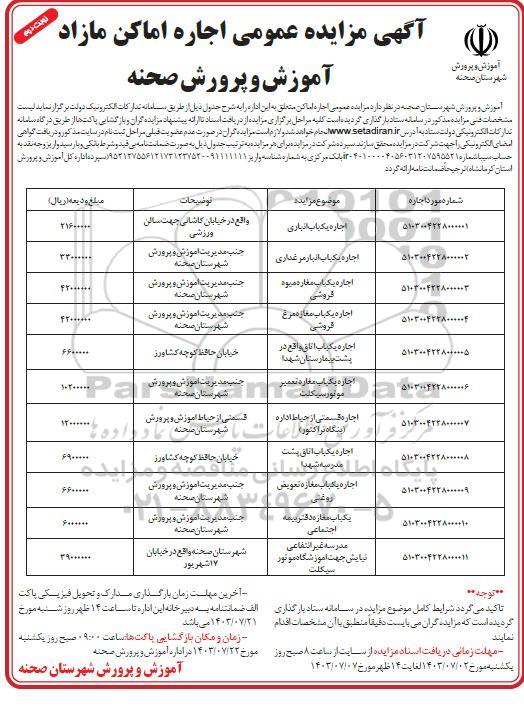 نوبت دوم
آگهی مزایده عمومی اجاره اماکن مازاد
آموزش و پرورش صحنه
آموزش و پرورش
شهرستان صحنه
آموزش و پرورش شهرستان صحنه در نظر دارد مزایده عمومی اجاره اماکن متعلق به این اداره را به شرح جدول ذیل از طریق سامانه تدارکات الکترونیک دولت برگزار نماید لیست
مشخصات فنی مزایده مذکور در سامانه ستاد بارگذاری گردیده است کلیه مراحل برگزاری مزایده از دریافت اسناد تا ارائه پیشنهاد مزایده گران و بازگشایی پاکت ها از طریق درگاه سامانه
تدارکات الکترونیکی دولت ستاد به آدرس www.setadiran.ir انجام خواهد شد و لازم است مزایده گران در صورت عدم عضویت قبلی مراحل ثبت نام در سایت مذکور و دریافت گواهی
امضای الکترونیکی را جهت شرکت در مزایده محقق سازند سپرده شرکت در مزایده برای هر مزایده به ترتیب جدول ذیل به صورت ضمانت نامه بی قید و شرط بانکی و یا رسید واریز وجه نقد به
حساب سیبا شماره ir بانک مرکزی به شماره شناسه واریز (سپرده اداره کل آموزش و پرورش
استان کرمانشاه) ترجیحاً ضمانت نامه ارائه گردد
شماره مورد اجاره موضوع مزایده توضیحات مبلغ ودیعه (ریال)
۵۱۰۳۰۰۴۲۲۸۰۰۰۰۰۱ اجاره یکباب انباری واقع در خیابان کاشانی جهت سالن ورزشی ۲۱۶۰۰۰۰۰
۵۱۰۳۰۰۴۲۲۸۰۰۰۰۰۲ اجاره یکباب انبار مرغداری جنب مدیریت آموزش و پرورش شهرستان صحنه ۳۳۰۰۰۰۰۰
۵۱۰۳۰۰۴۲۲۸۰۰۰۰۰۳ اجاره یکباب مغازه میوه فروشی جنب مدیریت آموزش و پرورش شهرستان صحنه ۴۲۰۰۰۰۰۰
۵۱۰۳۰۰۴۲۲۸۰۰۰۰۰۴ اجاره یکباب مغازه مرغ فروشی جنب مدیریت آموزش و پرورش شهرستان صحنه ۴۲۰۰۰۰۰۰
۵۱۰۳۰۰۴۲۲۸۰۰۰۰۰۵ اجاره یکباب اتاق واقع در پشت بیمارستان شهدا خیابان حافظ کوچه کشاورز ۶۶۰۰۰۰۰
۵۱۰۳۰۰۴۲۲۸۰۰۰۰۰۶ اجاره یکباب مغازه تعمیر موتورسیکلت جنب مدیریت آموزش و پرورش شهرستان صحنه ۱۰۲۰۰۰۰۰
۵۱۰۳۰۰۴۲۲۸۰۰۰۰۰۷ اجاره قسمتی از حیاط اداره (بنگاه تراکتور) قسمتی از حیاط آموزش و پرورش شهرستان صحنه ۱۲۰۰۰۰۰۰
۵۱۰۳۰۰۴۲۲۸۰۰۰۰۰۸ اجاره یکباب اتاق پشت مدرسه شهدا خیابان حافظ کوچه کشاورز ۶۹۰۰۰۰۰
۵۱۰۳۰۰۴۲۲۸۰۰۰۰۰۹ اجاره یکباب مغازه تعویض روغنی جنب مدیریت آموزش و پرورش شهرستان صحنه ۶۶۰۰۰۰۰
۵۱۰۳۰۰۴۲۲۸۰۰۰۰۱۰ یکباب مغازه دفتر بیمه اجتماعی جنب مدیریت آموزش و پرورش شهرستان صحنه ۶۰۰۰۰۰۰
۵۱۰۳۰۰۴۲۲۸۰۰۰۰۱۱ مدرسه غیر انتفاعی نیایش جهت آموزشگاه موتور سیکلت شهرستان صحنه واقع در خیابان ۱۷ شهریور ۳۹۰۰۰۰۰۰
ParsNamadData
پایگاه اطلاع رسانی مناقصه و مزایده
۰۲۱-۸۸۳۴۹۶۷۰-۵
**توجه**
تاکید می گردد شرایط کامل موضوع مزایده در سامانه ستاد بارگذاری
گردیده است که مزایده گران می بایست دقیقاً منطبق با آن مشخصات اقدام
نمایند
-مهلت زمانی دریافت اسناد مزایده از سایت از ساعت ۸ صبح روز
یکشنبه مورخ ۱۴۰۳/۰۷/۰۲ لغایت ۱۴ ظهر مورخ ۱۴۰۳/۰۷/۰۷
-آخرین مهلت زمان بارگذاری مدارک و تحویل فیزیکی پاکت
الف ضمانتنامه به دبیرخانه این اداره تا ساعت ۱۴ ظهر روز شنبه مورخ
۱۴۰۳/۰۷/۲۱ می باشد
-زمان و مکان بازگشایی پاکت ها: ساعت ۰۹:۰۰ صبح روز یکشنبه
مورخ ۱۴۰۳/۰۷/۲۲ در اداره آموزش و پرورش صحنه
آموزش و پرورش شهرستان صحنه